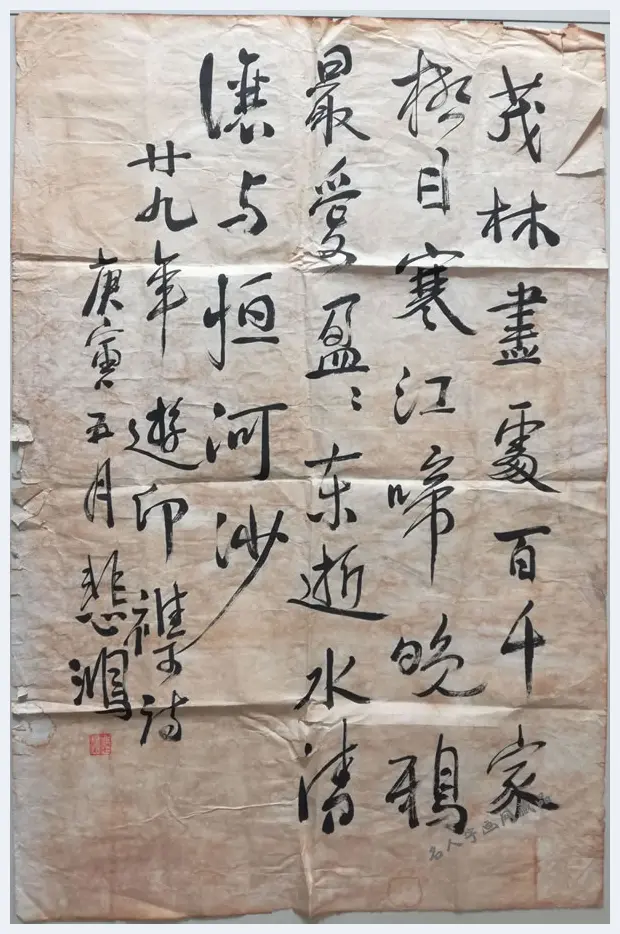 茂林盡處百千家
極目寒江啼晚鴉
最愛盈〻东逝水清
讓与恒河沙
廿九年遊印雜詩
庚寅五月 悲鴻
名人字画